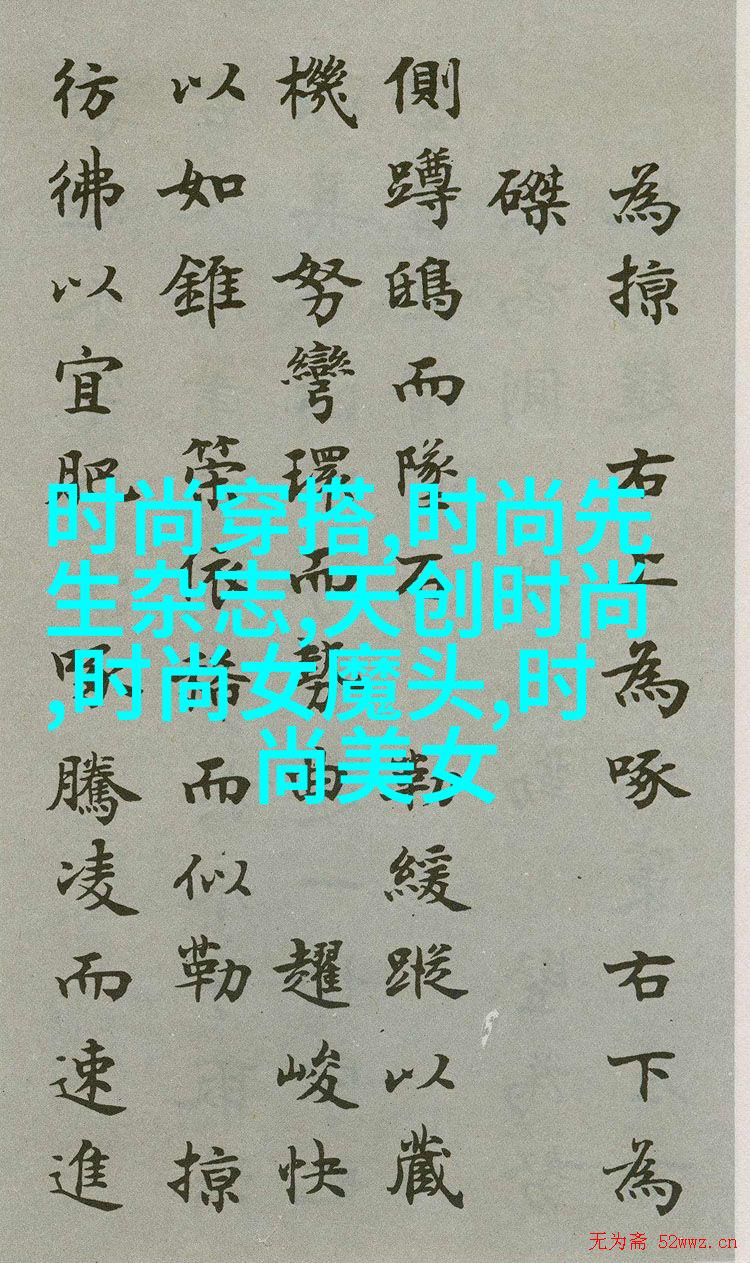 為掠 右上為啄 右下為
磔
側蹲鴟而墜石 勒緩蹤以藏
機 努彎環而勢曲 趯峻快
以如錐 策依稀而似勒 掠
彷彿以宜肥 啄騰凌而速進
时尚穿搭,时尚先
生杂志,天创时尚
,时尚女魔头,时
尚美女
无为斋 52wwz.cn